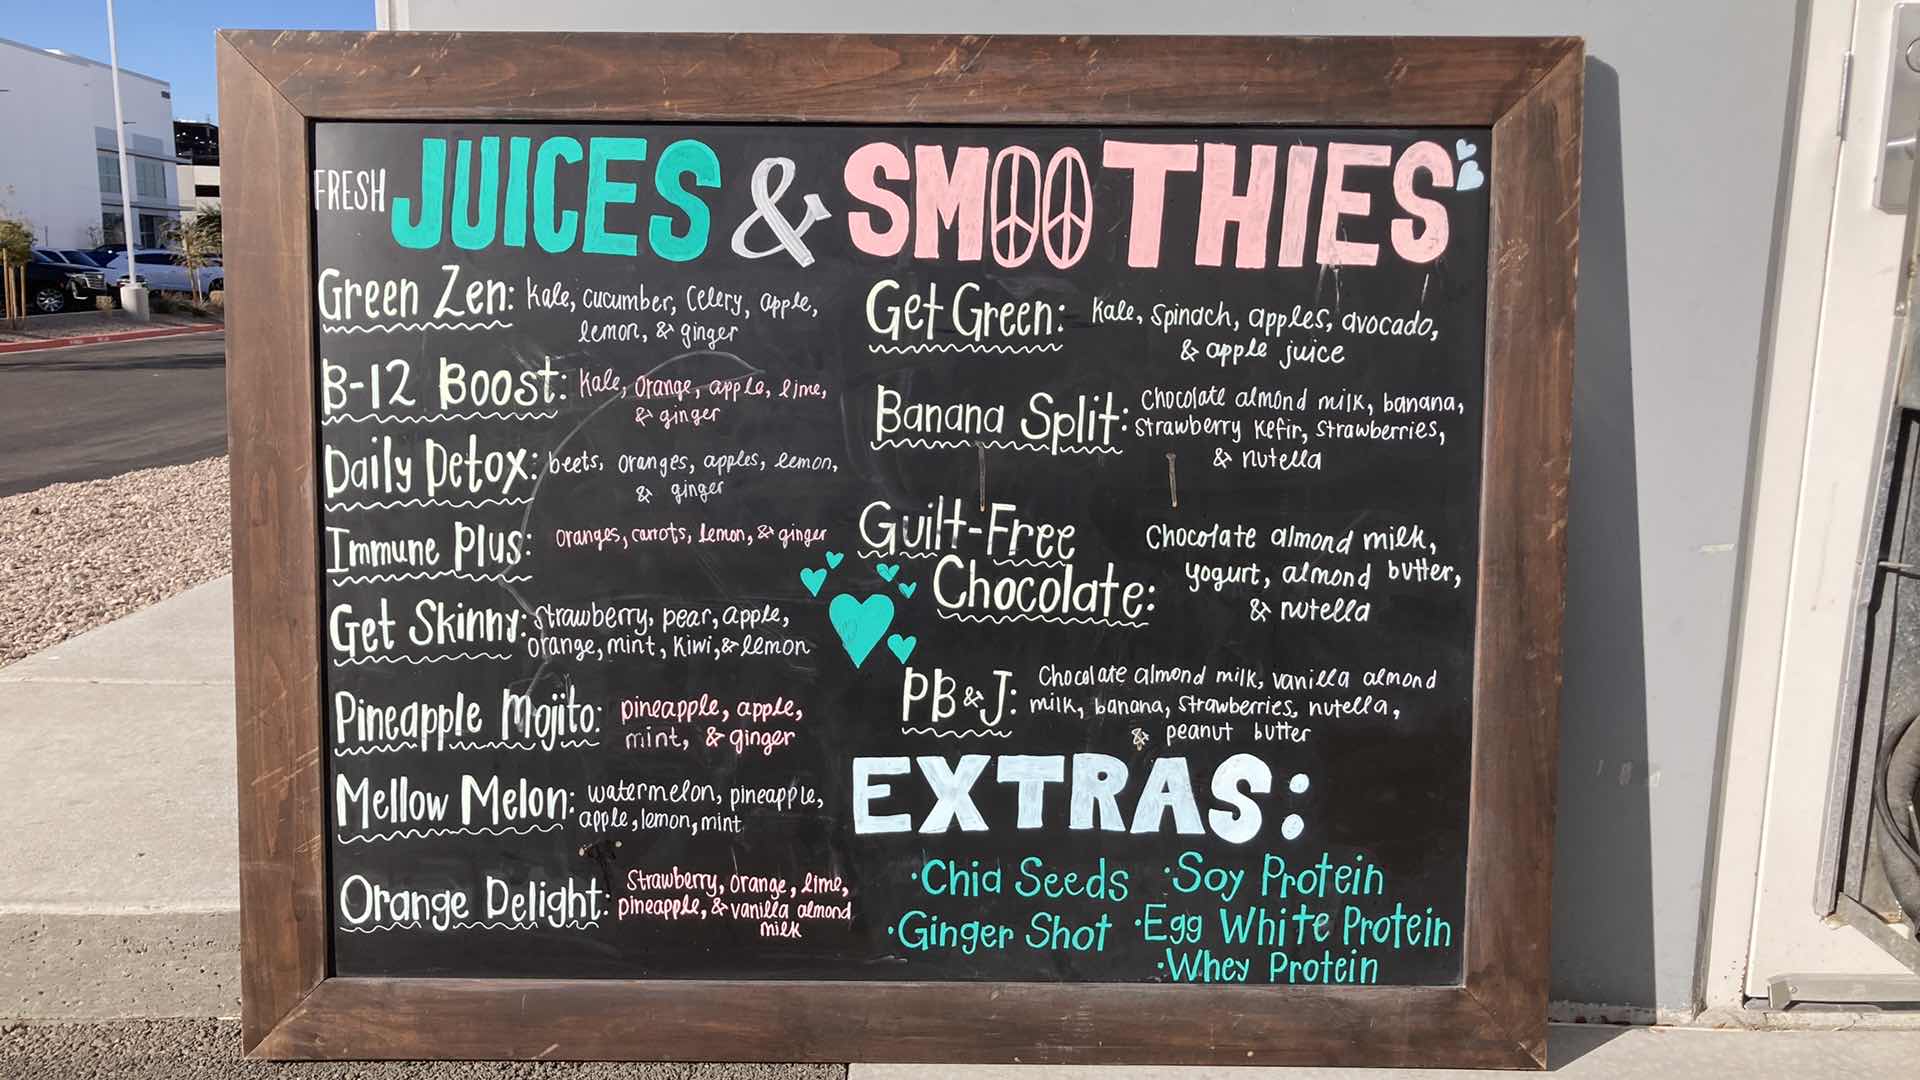 FRESH JUICES & SMOOTHIES
Green Zen: kale, cucumber, celery, apple,
lemon, & ginger
B-12 Boost: kale, orange, apple, lime,
& ginger
Daily Detox: beets, oranges, apples, lemon,
& ginger
Immune Plus: oranges, carrots, lemon, & ginger
Get Skinny: strawberry, pear, apple,
orange, mint, kiwi, & lemon
Pineapple Mojito: pineapple, apple,
mint, & ginger
Mellow Melon: watermelon, pineapple,
apple, lemon, mint
Orange Delight: strawberry, orange, lime,
pineapple, & vanilla almond
milk
Get Green: kale, spinach, apples, avocado,
& apple juice
Banana Split: Chocolate almond milk, banana,
strawberry kefir, strawberries,
& nutella
Guilt-Free
Chocolate:
Chocolate almond milk,
yogurt, almond butter,
& nutella
PB & J: Chocolate almond milk, vanilla almond
milk, banana, strawberries, nutella,
& peanut butter
EXTRAS:
•Chia Seeds •Soy Protein
•Ginger Shot •Egg White Protein
•Whey Protein